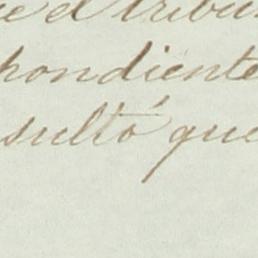 e el tribu
pondiente
sultó que